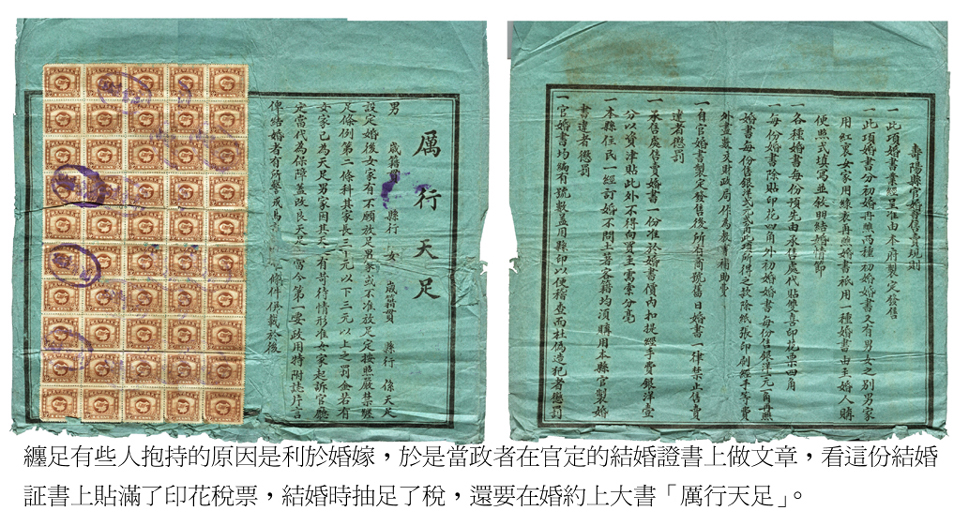 厲行天足
男 歲籍貫 縣行 女 歲籍貫 縣行 係天足
設定婚後女家有不願放足男家或不准設足定按照嚴禁纏
足條例第二條科其家長三十元以下三元以上之罰金若有
女家已為天足男家因其天足有苛待情形准女家起訴官廳
定當代為保障蓋改良天足實今第一要政用特附誌片言
俾結婚者有所警戒焉 條件併載於後
壽陽縣官婚書售賣規則
一此項婚書業經呈准由本府製定發售
一此項婚書分初婚再醮兩種初婚婚書又有男女之別男家
用紅裏女家用綠表再醮婚書祇用一種婚書由主婚人購
便照式填寫並敘明結婚情節
一各種婚書每份預先由承售處代貼雙喜印花票四角
一每份婚書除貼印花四角外初婚婚書每份售銀洋元二角再醮
婚書每份售銀洋弍元所得之款除紙張印刷經手等費
外盡數交財政局作為教育補助費
一自官婚書製定發售後所有前項舊日婚書一律禁止售賣
違者懲罰
一承售處售賣婚書一份准於婚書價內扣提經手費銀洋壹
分以資津貼此外不得向買主需索分毫
一本縣住民一經訂婚不問土著客籍均須購用本縣官製婚
書違者懲罰
一官婚書均編有號數蓋用縣印以便稽查而杜偽造犯者懲罰
纏足有些人抱持的原因是利於婚嫁，於是當政者在官定的結婚證書上做文章，看這份結婚
証書上貼滿了印花稅票，結婚時抽足了稅，還要在婚約上大書「厲行天足」。